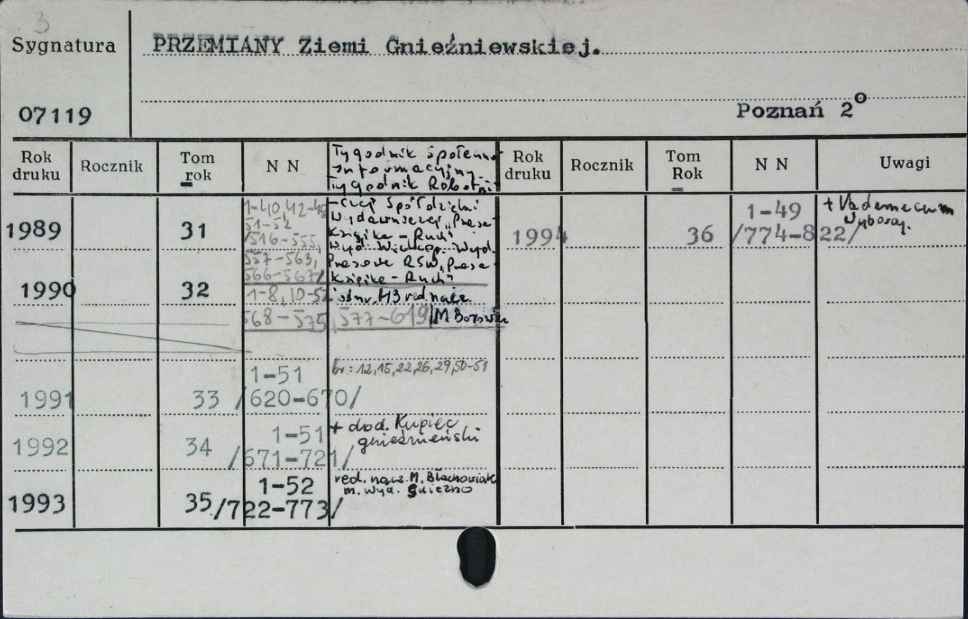 3
Sygnatura
PRZEMIANY Ziemi Gnieźniewskiej.
07119
Poznań 2°
Rok druku
Rocznik
Tom rok
N N
Tygodnik Społeczno
Informacyjny
Tygodnik
Rok druku
Rocznik
Tom Rok
N N
Uwagi
1989
31
1-40, 42-
51-52
/516-555,
557-563,
566-567/
Książka-Ruch
Prasowe RSW "Prasa
Książka-Ruch"
1990
32
1-8, 10-52
568-575, 577-619/
od nr 43 red. nacz.
1991
33
1-51
/620-670/
br: 12, 15, 22, 26, 29, 50-51
1992
34
1-51
/671-721/
+ dod. Kupiec
gnieźnieński
1993
35
1-52
/722-773/
red. nacz. M. Błachowiak
m. wyd. Gniezno
1994
36
1-49
/774-822/
+ Vademecum